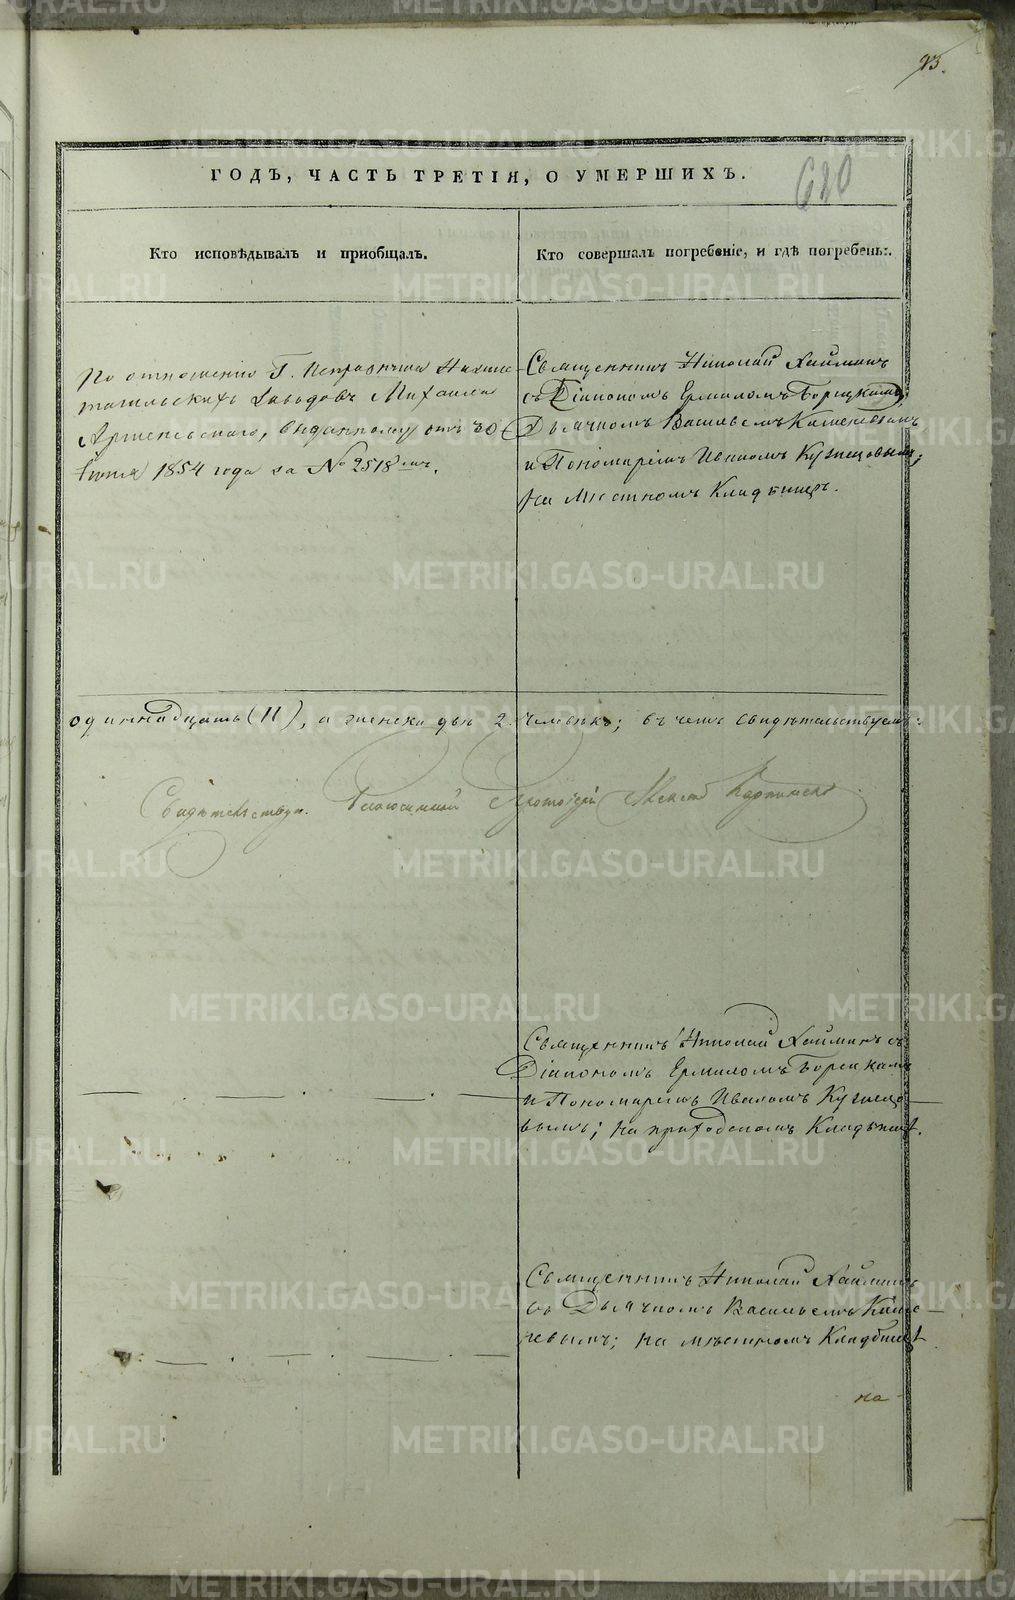 93.
620
ГОДЪ, ЧАСТЬ ТРЕТІЯ, О УМЕРШИХЪ.
Кто исповѣдывалъ и пріобщалъ.
Кто совершалъ погребеніе, и гдѣ погребены.
По отношенію Г. Исправника Нижне-
тагильскихъ Заводовъ Михаила
выданному отъ 30
Іюня 1854 года за № 2518 мъ.
Священникъ Николай Хайминъ
съ Діакономъ Ермиломъ Борецкимъ,
Дьячкомъ Васильемъ
и Пономаремъ Иваномъ Кузнецовымъ;
на мѣстномъ Кладбищѣ.
одиннадцать (11), а женска двѣ 2. человѣкъ; въ чемъ свидѣтельствуемъ:
Свидѣтельствую. Благочинный Протоіерей
Священникъ Николай Хайминъ съ
Діакономъ Ермиломъ Борецкимъ
и Пономаремъ Иваномъ Кузнецо-
вымъ; на приходскомъ Кладбищѣ.
Священникъ Николай Хайминъ
съ Дьячкомъ Васильемъ
на мѣстномъ Кладбищѣ
на
METRIKI.GASO-URAL.RU